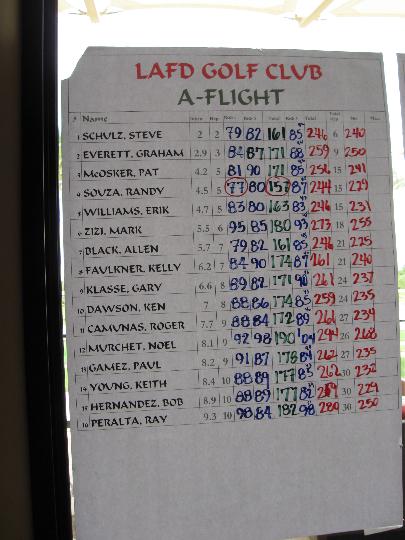 LAFD GOLF CLUB
A-FLIGHT
# Name Total Total
1 SCHULZ, STEVE 2 2 79 82 161 85 246 6 240
2 EVERETT, GRAHAM 2.9 3 84 87 171 88 259 9 250
3 McOSKER, PAT 4.2 5 81 90 171 85 256 15 241
4 SOUZA, RANDY 4.5 5 77 80 157 87 244 15 229
5 WILLIAMS, ERIK 4.7 5 83 80 163 83 246 15 231
6 ZIZI, MARK 5.5 6 95 85 180 93 273 18 255
7 BLACK, ALLEN 5.7 7 79 82 161 85 246 21 225
8 FAULKNER, KELLY 6.2 7 84 90 174 87 261 21 240
9 KLASSE, GARY 6.6 8 89 82 171 90 261 24 237
10 DAWSON, KEN 7 8 88 86 174 85 259 24 235
11 CAMUNAS, ROGER 7.7 9 88 84 172 89 261 27 234
12 MURCHET, NOEL 8.1 9 92 98 190 104 294 26 268
13 GAMEZ, PAUL 8.2 9 91 87 178 84 262 27 235
14 YOUNG, KEITH 8.4 10 88 89 177 85 262 30 232
15 HERNANDEZ, BOB 8.9 10 88 89 177 82 30 229
16 PERALTA, RAY 9.3 10 98 84 182 98 280 30 250